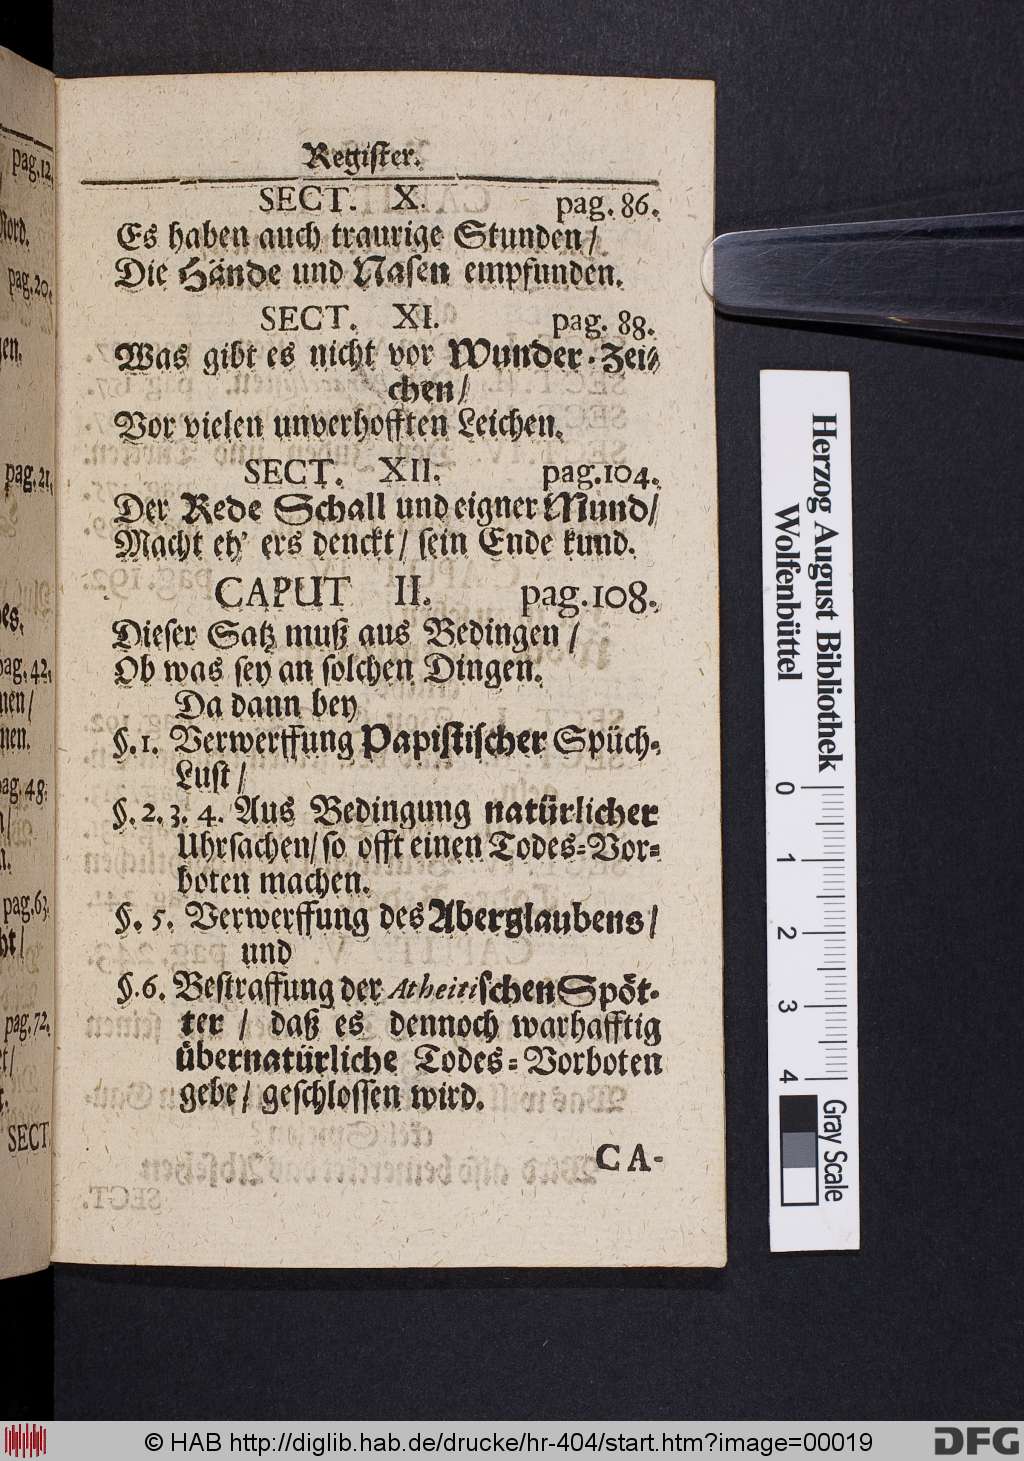 Register.
SECT. X. pag. 86.
Es haben auch traurige Stunden/
Die Hände und Nasen empfunden.
SECT. XI. pag. 88.
Was gibt es nicht vor Wunder-Zei-
chen/
Vor vielen unverhofften Leichen.
SECT. XII. pag. 104.
Der Rede Schall und eigner Mund/
Macht eh' ers denckt/ sein Ende kund.
CAPUT II. pag. 108.
Dieser Satz muß aus Bedingen/
Ob was sey an solchen Dingen.
Da dann bey
§. 1. Verwerffung Papistischer Spüch-
Lust/
§. 2. 3. 4. Aus Bedingung natürlicher
Uhrsachen/ so offt einen Todes-Vor-
boten machen.
§. 5. Verwerffung des Aberglaubens/
und
§. 6. Bestraffung der Atheitischen Spöt-
ter/ daß es dennoch warhafftig
übernatürliche Todes-Vorboten
gebe/ geschlossen wird.
CA-
pag. 12.
pag. 20.
pag. 21.
pag. 42.
pag. 48.
pag. 63.
pag. 72.
SECT
Herzog August Bibliothek
Wolfenbüttel
0 1 2 3 4
Gray Scale
© HAB http://diglib.hab.de/drucke/hr-404/start.htm?image=00019
DFG